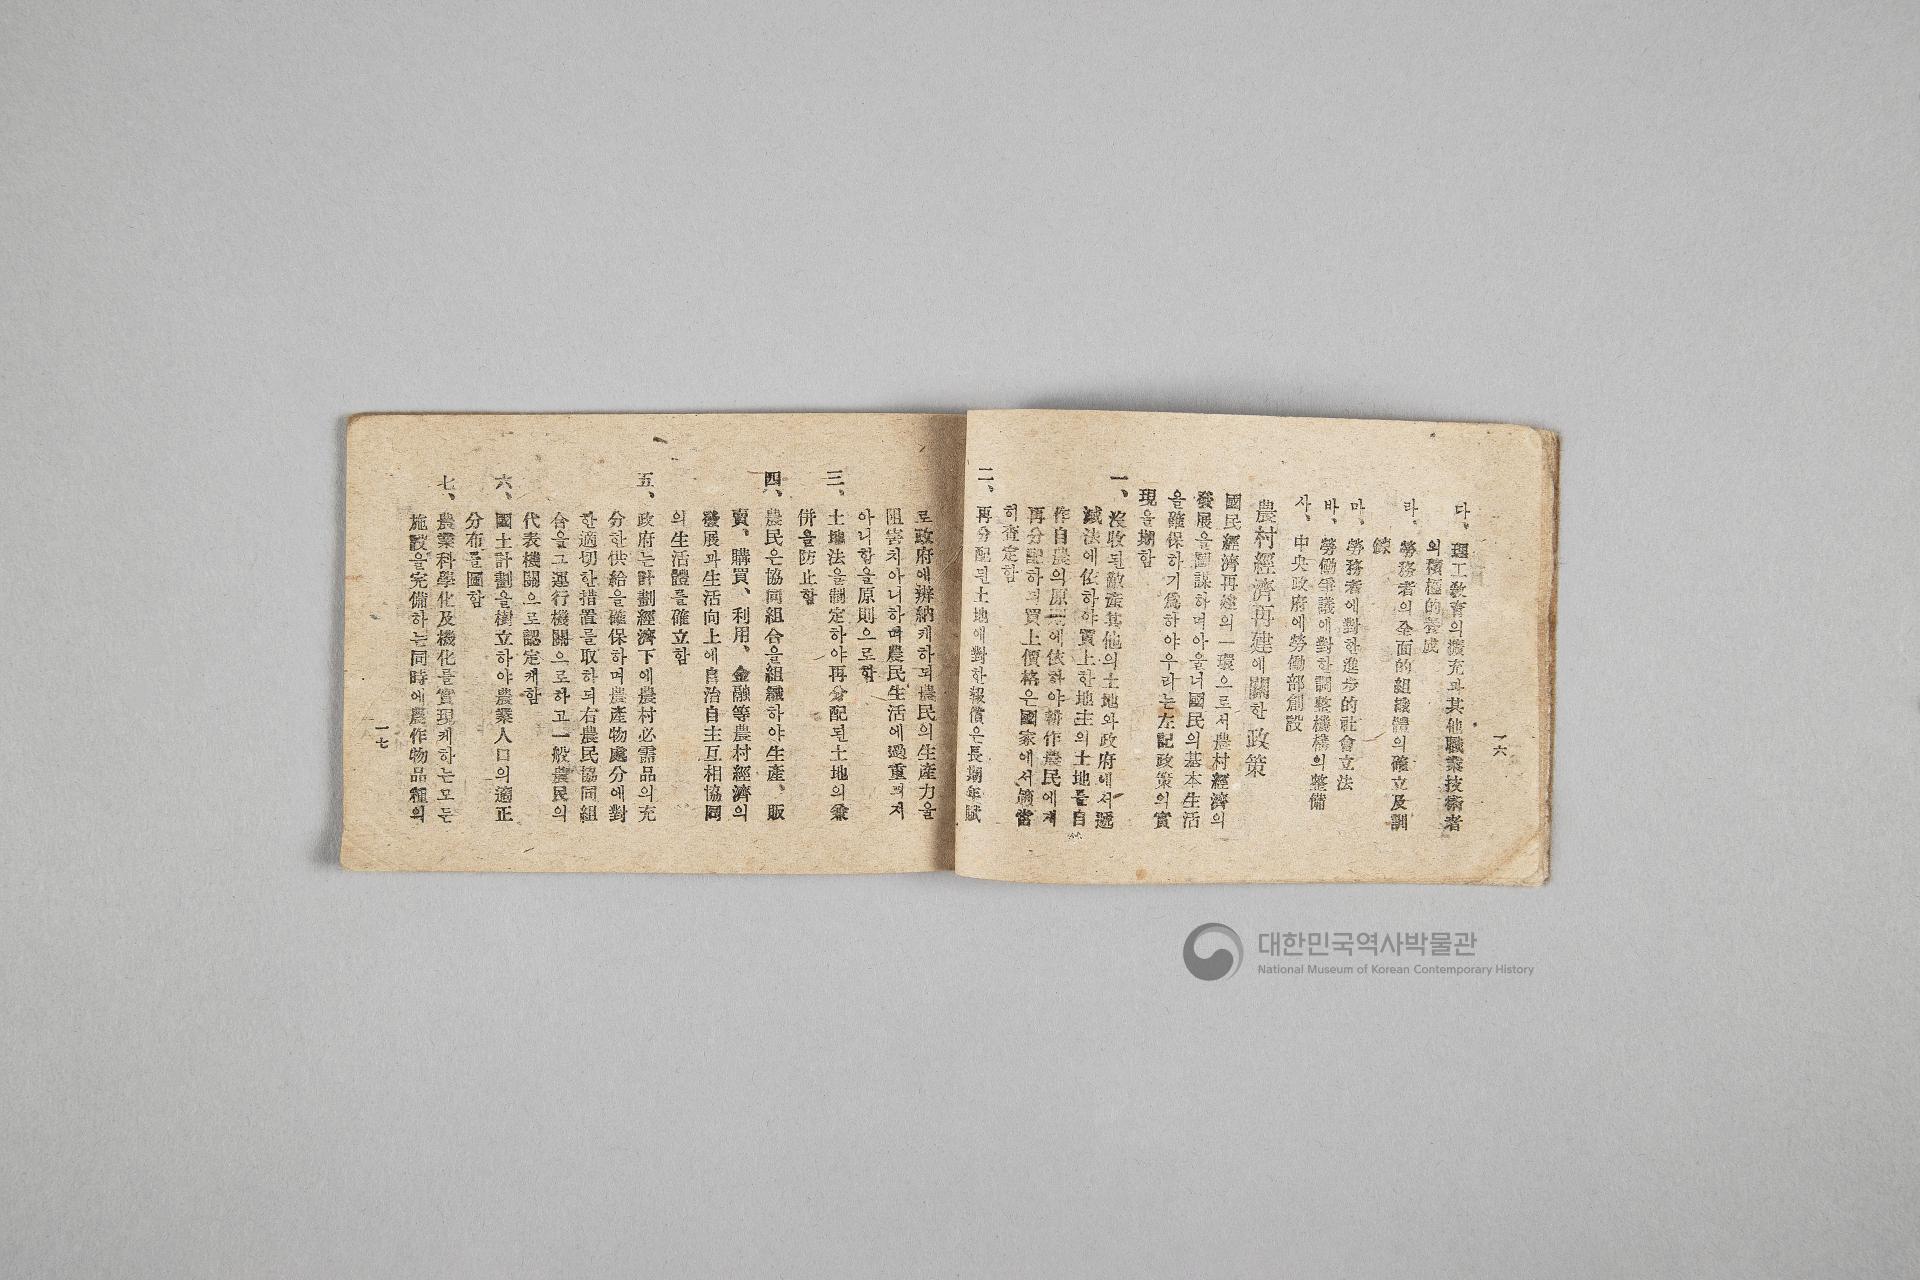 다、理工敎育의擴充과其他職業技術者
의積極的養成
라、勞務者의全面的組織體의確立及訓
鍊
마、勞務者에對한進步的社會立法
바、勞働爭議에對한調整機構의整備
사、中央政府에勞働部創設
農村經濟再建에關한政策
國民經濟再建의一環으로서農村經濟의
發展을圖謀하며아울너國民의基本生活
을確保하기爲하야우리는左記政策의實
現을期함
一、沒收된敵產其他의土地와政府에서遞
減法에依하야買上한地主의土地를自
作自農의原則에依하야耕作農民에게
再分配하되買上價格은國家에서適當
히査定함
二、再分配된土地에對한報償은長期年賦
一六
로政府에辨納케하되農民의生產力을
阻害치아니하며農民生活에過重되지
아니함을原則으로함
三、土地法을制定하야再分配된土地의兼
併을防止함
四、農民은協同組合을組織하야生產、販
賣、購買、利用、金融等農村經濟의
發展과生活向上에自治自主互相協同
의生活體를確立함
五、政府는計劃經濟下에農村必需品의充
分한供給을確保하며農產物處分에對
한適切한措置를取하되右農民協同組
合을그運行機關으로하고一般農民의
代表機關으로認定케함
六、國土計劃을樹立하야農業人口의適正
分布를圖함
七、農業科學化及機化를實現케하는모든
施設을完備하는同時에農作物品種의
一七
대한민국역사박물관
National Museum of Korean Contemporary History